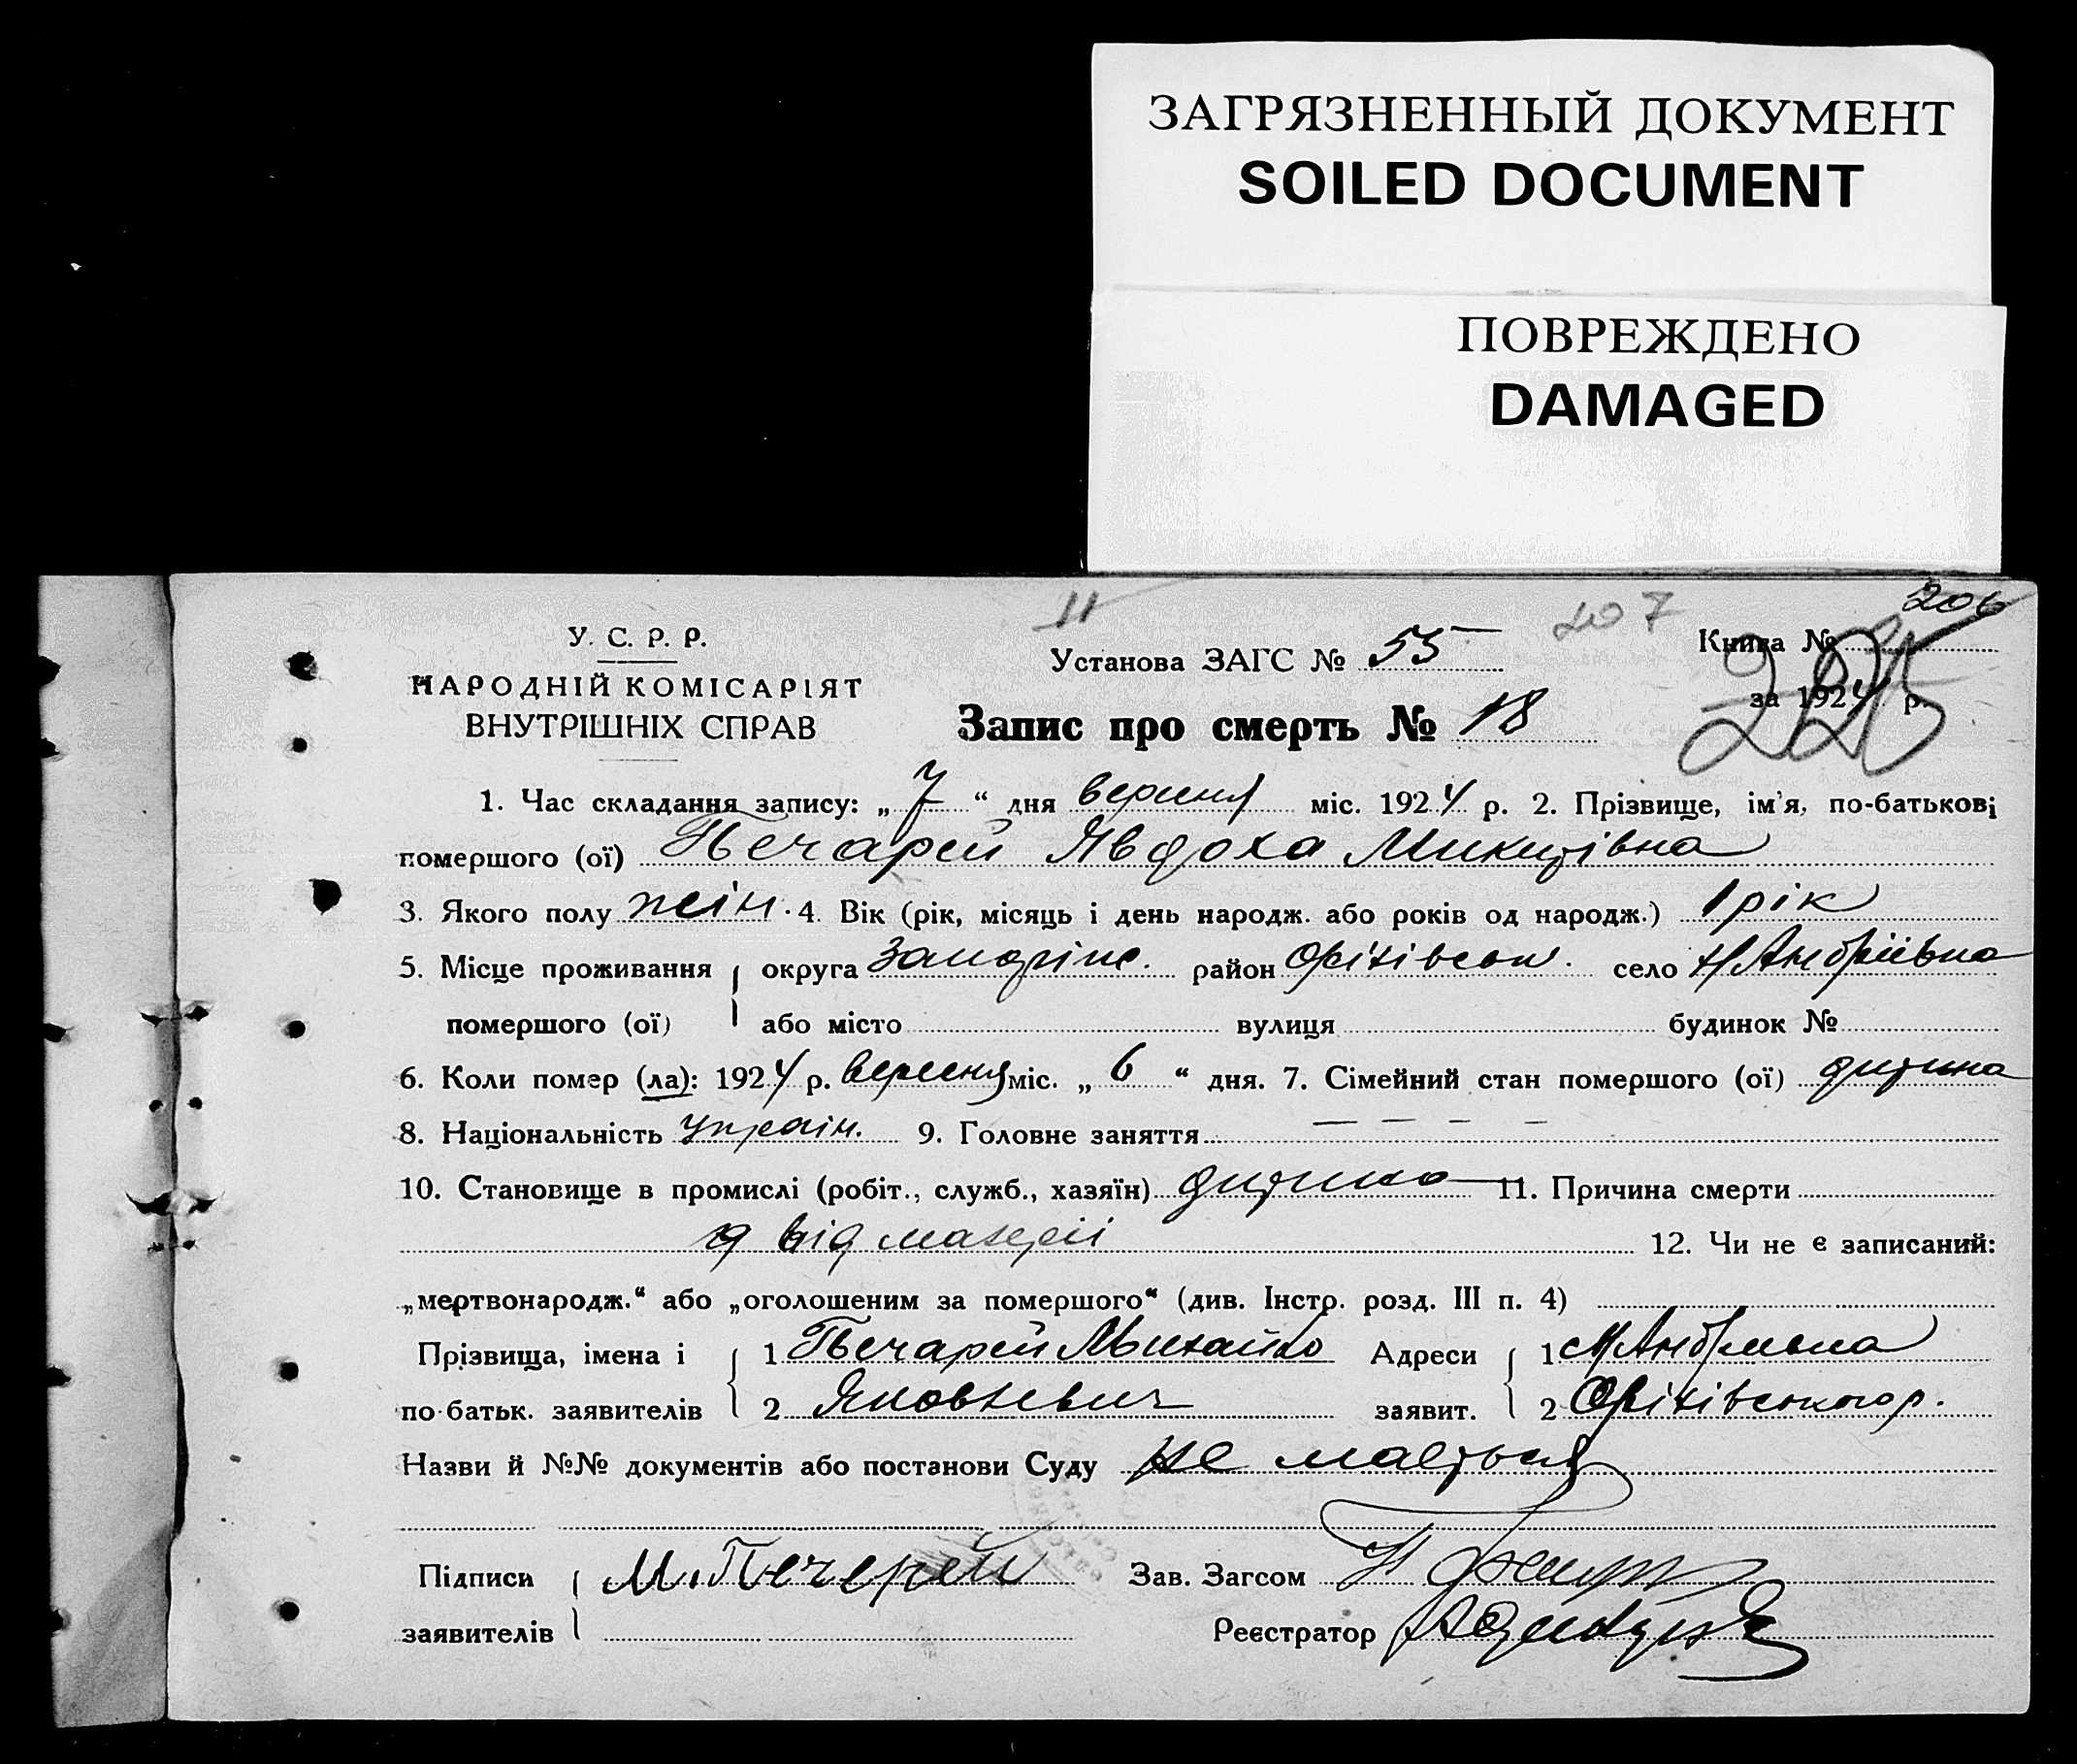 ЗАГРЯЗНЕННЫЙ ДОКУМЕНТ
SOILED DOCUMENT
ПОВРЕЖДЕНО
DAMAGED
11
207
206
225
У. С. Р. Р.
НАРОДНІЙ КОМІСАРІЯТ
ВНУТРІШНІХ СПРАВ
Установа ЗАГС № 55
Книга №
за 1924 р.
Запис про смерть № 18
1. Час складання запису: „ 7 “ дня вересня міс. 1924 р. 2. Прізвище, ім'я, по-батькові
помершого (ої) Печарей Явдоха Микитівна
3. Якого полу жін. 4. Вік (рік, місяць і день народж. або років од народж.) 1 рік
5. Місце проживання округа Запоріж. район Оріхівськ. село Н Андріївка
помершого (ої) або місто вулиця будинок №
6. Коли помер (ла): 1924 р. вересня міс. „ 6 “ дня. 7. Сімейний стан помершого (ої) дитина
8. Національність україн. 9. Головне заняття – – – –
10. Становище в промислі (робіт., служб., хазяїн) дитина 11. Причина смерти
від 12. Чи не є записаний:
„мертвонародж.“ або „оголошеним за помершого“ (див. Інстр. розд. III п. 4)
Прізвища, імена і 1 Печарей Михайло Адреси 1
по-батьк. заявителів 2 Яковлевич заявит. 2 Оріхівського р.
Назви й №№ документів або постанови Суду не мається
Підписи М. Печерей Зав. Загсом
заявителів Реєстратор